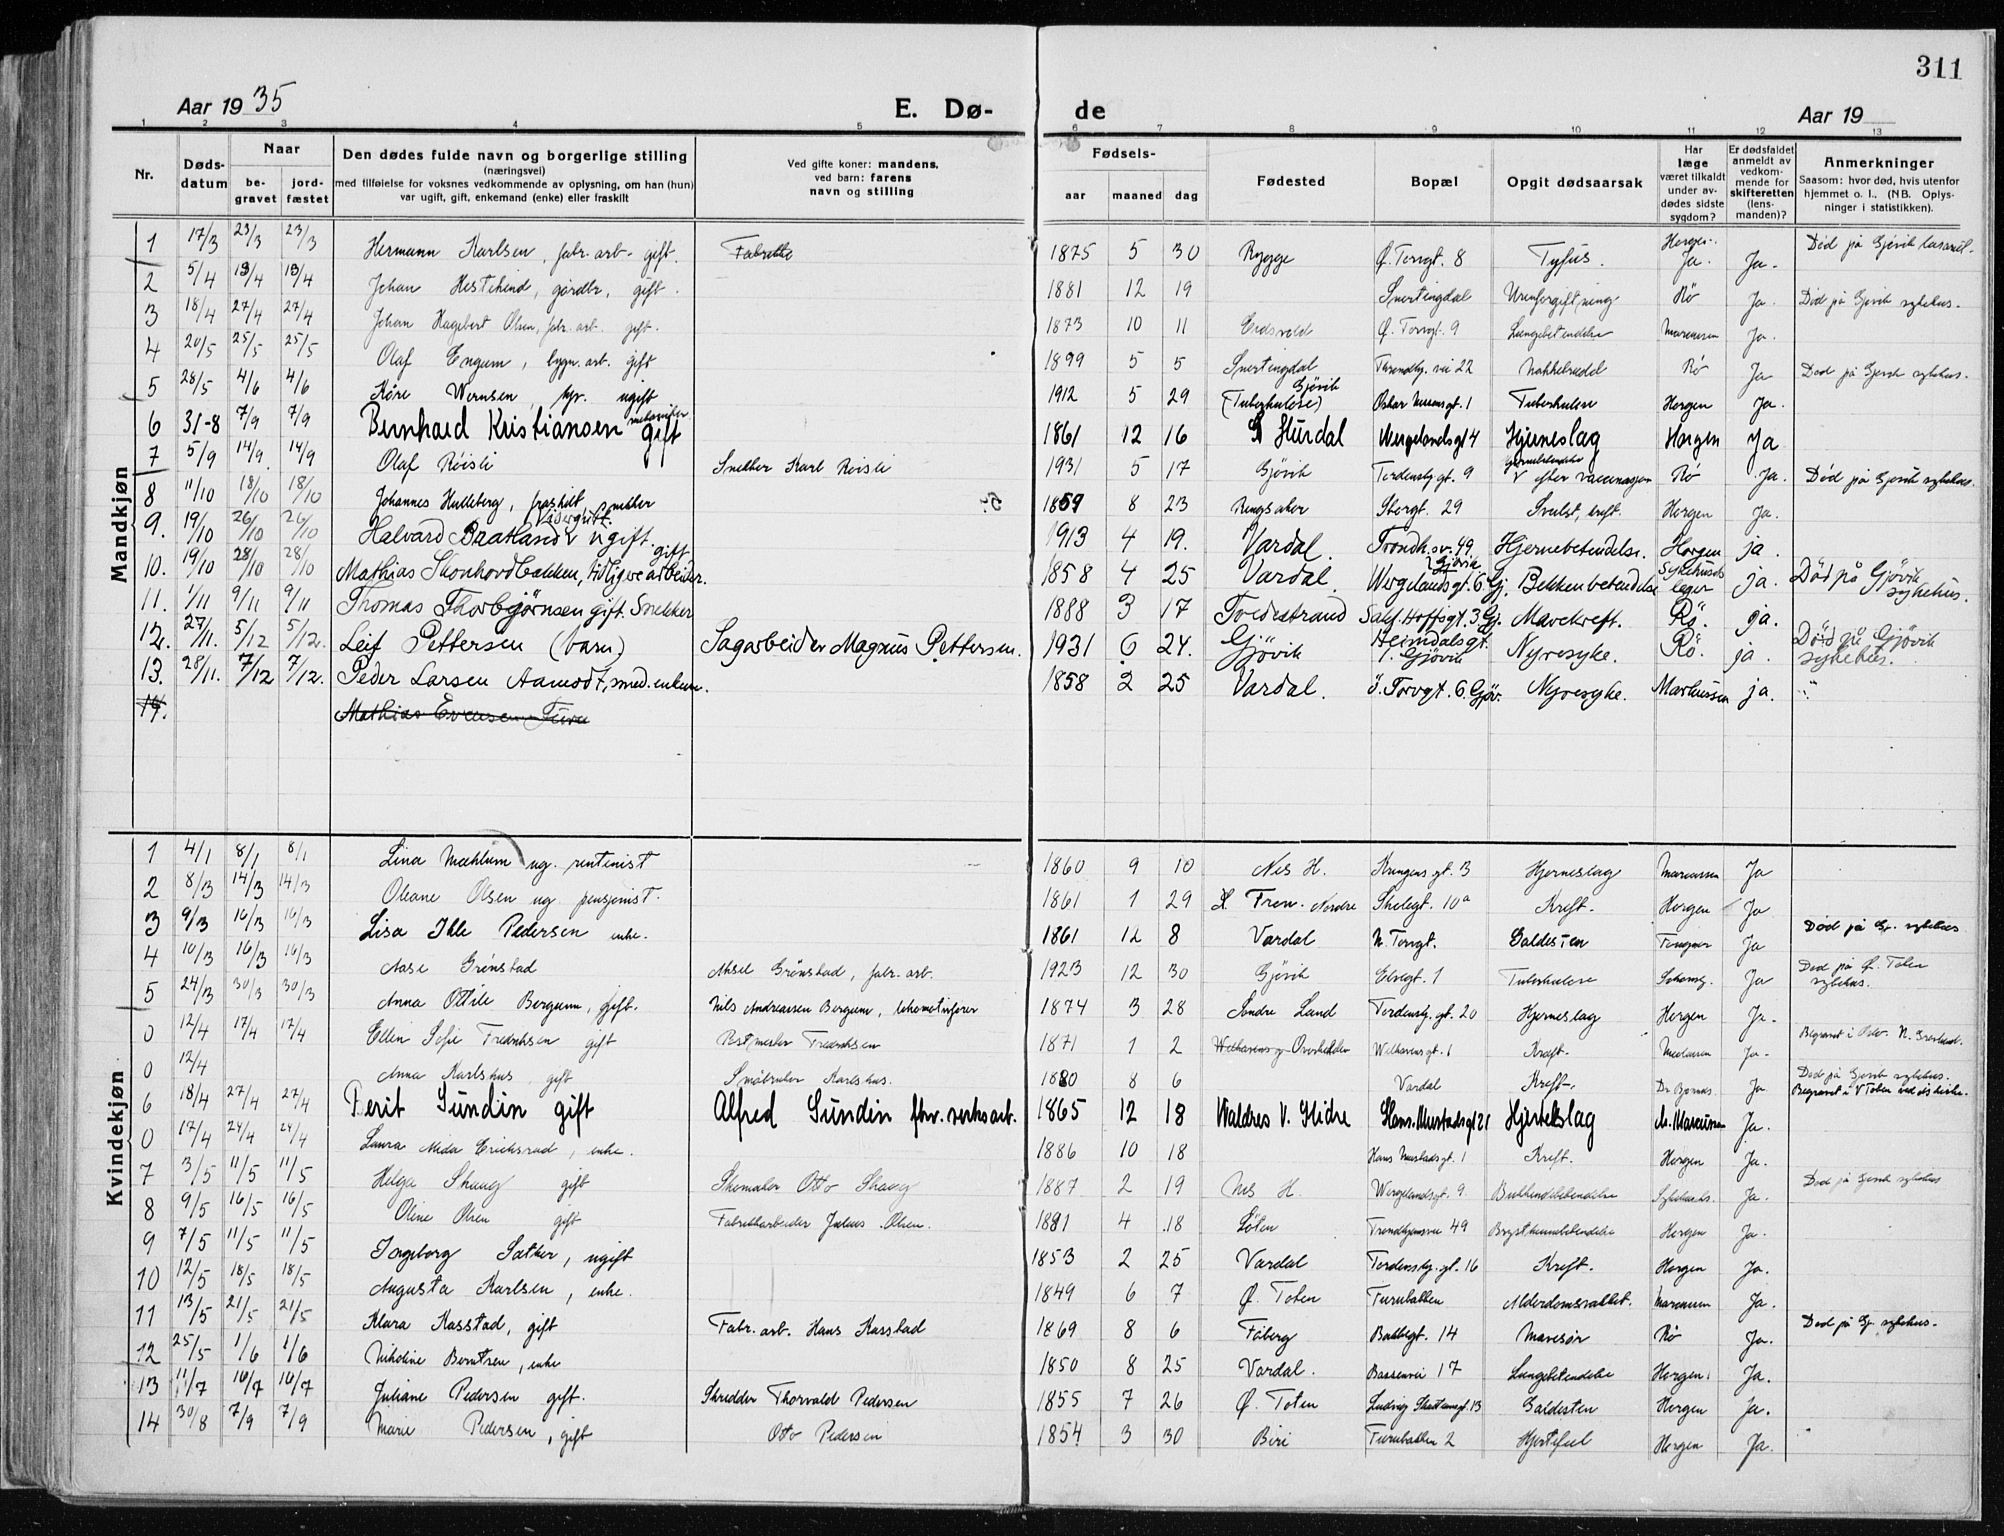 311
Aar 19 35
E. Dø-
de
Aar 19
1 2 3 4 5 6 7 8 9 10 11 12 13
Nr.
Døds-datum
Naar
be-gravet
jord-fæstet
Den dødes fulde navn og borgerlige stilling
(næringsvei)
med tilføielse for voksnes vedkommende av oplysning, om han (hun)
var ugift, gift, enkemand (enke) eller fraskilt
Ved gifte koner: mandens,
ved barn: farens
navn og stilling
Fødsels-
aar
maaned
dag
Fødested
Bopæl
Opgit dødsaarsak
Har læge været tilkaldt under av-dødes sidste sygdom?
Er dødsfaldet anmeldt av vedkom-mende for skifteretten (lens-manden)?
Anmerkninger
Saasom: hvor død, hvis utenfor
hjemmet o. l., (NB. Oplys-
ninger i statistikken).
Mandkjøn
1 17/3 23/3 23/3 Hermann Karlsen, fabr. arb. gift. 1875 5 30 Rygge Ø. Torvgt. 8 Tyfus. Horgen Ja. Ja. Død på Gjøvik lasarett.
2 5/4 13/4 13/4 Johan Hestekind, gårdbr., gift. 1881 12 19 Snertingdal Urinforgiftning Rø Ja. Død på Gjøvik sykehus.
3 18/4 27/4 27/4 Johan Hagebert Olsen, fabr. arb. gift. 1873 10 11 Eidsvold Ø. Torvgt. 9 Lungebetendelse Marcussen Ja.
4 20/5 25/5 25/5 Olaf Engum, bygn. arb. gift 1899 5 5 Snertingdal Trondhj. vei 22 Rø Ja Død på Gjøvik sykehus.
5 28/5 4/6 4/6 Kåre Wernsen, ugift 1912 5 29 (Tuberkulose) Gjøvik Oskar 1 Tuberkulose Horgen Ja.
6 31-8 7/9 7/9 Bernhard Kristiansen gift 1861 12 16 Hurdal Wergelandsgt 4 Hjerneslag Horgen Ja
7 5/9 14/9 14/9 Olaf Roisli Snekker Karl Roisli 1931 5 17 Gjøvik Tordenskj. gt. 9 Hjernebetendelse efter vaccinasjon Rø Ja. Død på Gjøvik sykehus.
8 11/10 18/10 18/10 Johannes Hulleberg, fraskilt snekker 1859 8 23 Ringsaker Storgt. 29 Svulst, kreft. Horgen Ja.
9. 19/10 26/10 26/10 Halvard Bratland ugift. 1913 4 19. Vardal. Trondh.sv. 49. Gjøvik Hjernebetendelse. Horgen ja.
10. 19/10 28/10 28/10 Mathias Skonhovdbakken, tidligere arbeider. gift 1858 4 25 Vardal Wergelandsgt. 6 Gj. Bekkenbetendelse Sykehusets leger ja. Død på Gjøvik sykehus.
11. 1/11 9/11 9/11 Thomas Thorbjørnsen gift. Snekker 1888 3 17 Tvedestrand Sakf. Hoffsgt. 3 Gj. Mavekreft. Rø. ja.
12. 27/11. 5/12 5/12. Leif Pettersen (barn) Sagarbeider Magnus Pettersen. 1931 6 24. Gjøvik Heimdalsgt. 1. Gjøvik Nyresyke. Rø. ja. Død på Gjøvik sykehus.
13. 28/11. 7/12 7/12. Peder Larsen Aamodt, smed. enkem. 1858 2 25 Vardal. Ö. Torvgt. 6. Gjøv. Nyresyke. Markussen ja.
14. Mathias Evensen Furu
Kvindekjøn
1 4/1 8/1 8/1 Lina Mæhlum ug. rentenist 1860 9 10 Nes H. Kongens gt. 3 Hjerneslag Marcussen Ja
2 8/3 14/3 14/3 Oleane Olsen ug. pensjonist. 1861 1 29 Fron. Nordre Skolegt. 10a Kreft. Horgen Ja
3 9/3 16/3 16/3 Lisa Ihle Pedersen enke. 1861 12 8 Vardal N. Torvgt. Galdesten Ja Død på Gj. sykehus
4 10/3 16/3 16/3 Aase Grönstad Aksel Grönstad, fabr. arb. 1923 12 30 Gjøvik Elvegt. 1 Tuberkulose Ja Død på Ø. Toten sykehus.
5 24/3 30/3 30/3 Anna Otilie Bergum, gift. Nils Andreassen Bergum, lokomotivfører 1874 3 28 Søndre Land Tordenskj. gt. 20 Hjerneslag Horgen Ja.
0 12/4 17/4 17/4 Ellen Sofie Fredriksen gift Postmester Fredriksen 1871 1 2 Welhavensgt. 1 Kreft. Ja. Begravet i Oslo.
0 12/4 Anna Karlshus gift Småbruker Karlshus. 1880 8 6 Vardal Kreft. Ja Død på Gjøvik sykehus. Begravet i V Toten
6 18/4 27/4 27/4 Berit Sundin gift Alfred Sundin fhv. verksarb. 1865 12 18 Valdres V. Slidre Hans Mustadsgt 21 Hjerneslag M. Marcussen Ja.
0 17/4 24/4 24/4 Laura Erichsrud, enke. 1886 10 18 Hans Mustadsgt. 1 Kreft. Horgen Ja.
7 3/5 11/5 11/5 Helga Skaug gift Skomaker Otto Skaug 1887 2 19 Nes H. Wergelandsgt. 9. Bukhindebetendelse Sykehusets. Ja. Død på Gjøvik sykehus
8 9/5 16/5 16/5 Oline Olsen gift Fabrikkarbeider Julius Olsen. 1881 4 18 Løten Trondhjemsvei 49 Brysthinnebetendelse Horgen Ja.
9 7/5 11/5 11/5 Ingeborg Sæther, ugift 1853 2 25 Vardal Tordenskj. gt. 16 Kreft. Horgen Ja.
10 12/5 18/5 18/5 Augusta Karlsen, enke. 1849 6 7 Ø. Toten Furubakken Alderdomssvakhet. Marcussen Ja.
11 13/5 21/5 21/5 Klara Kasstad, gift Fabr. arb. Hans Kasstad 1869 8 6 Fåberg Bakkegt. 14 Mavesår Rø Ja. Død på Gj. sykehus.
12 25/5 1/6 1/6 Nikoline Berntsen, enke 1850 8 25 Vardal. Bassenvei 17 Lungebetendelse Horgen Ja.
13 11/7 16/7 16/7 Juliane Pedersen gift. Skredder Thorvald Pedersen 1855 7 26 Ø. Toten Ludvig Skattumsgt. 13 Galdesten Horgen Ja.
14 30/8 7/9 7/9 Marie Pedersen, gift Otto Pedersen 1854 3 30 Biri Furubakken 2 Hjertefeil Horgen Ja.